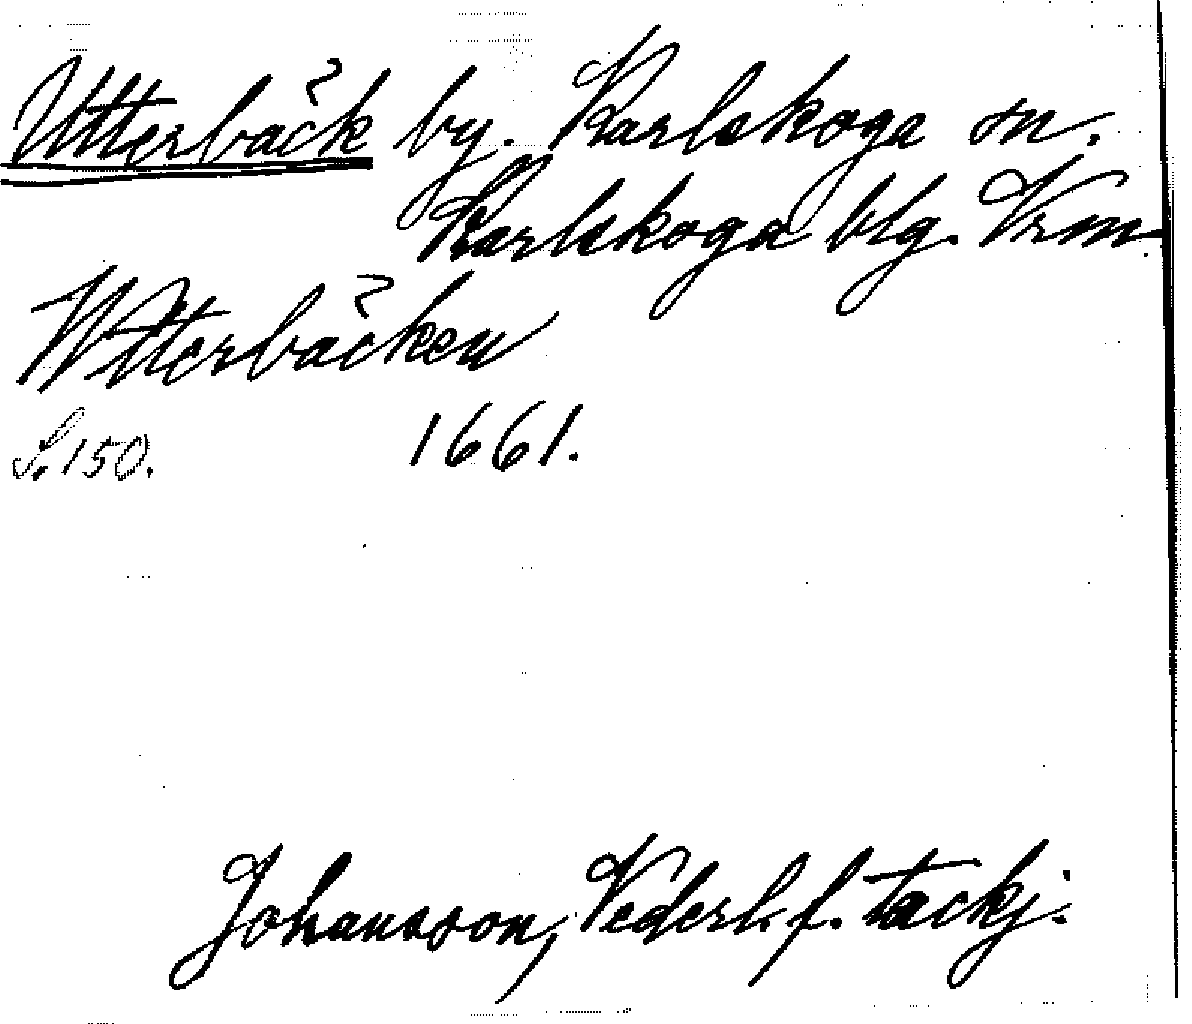 Utterbäck by. Karlskoga sn.
Karlskoga blg. Vrm.
Wtterbäcken
S. 150. 1661.
Johansson, Vederl. f. tackj.